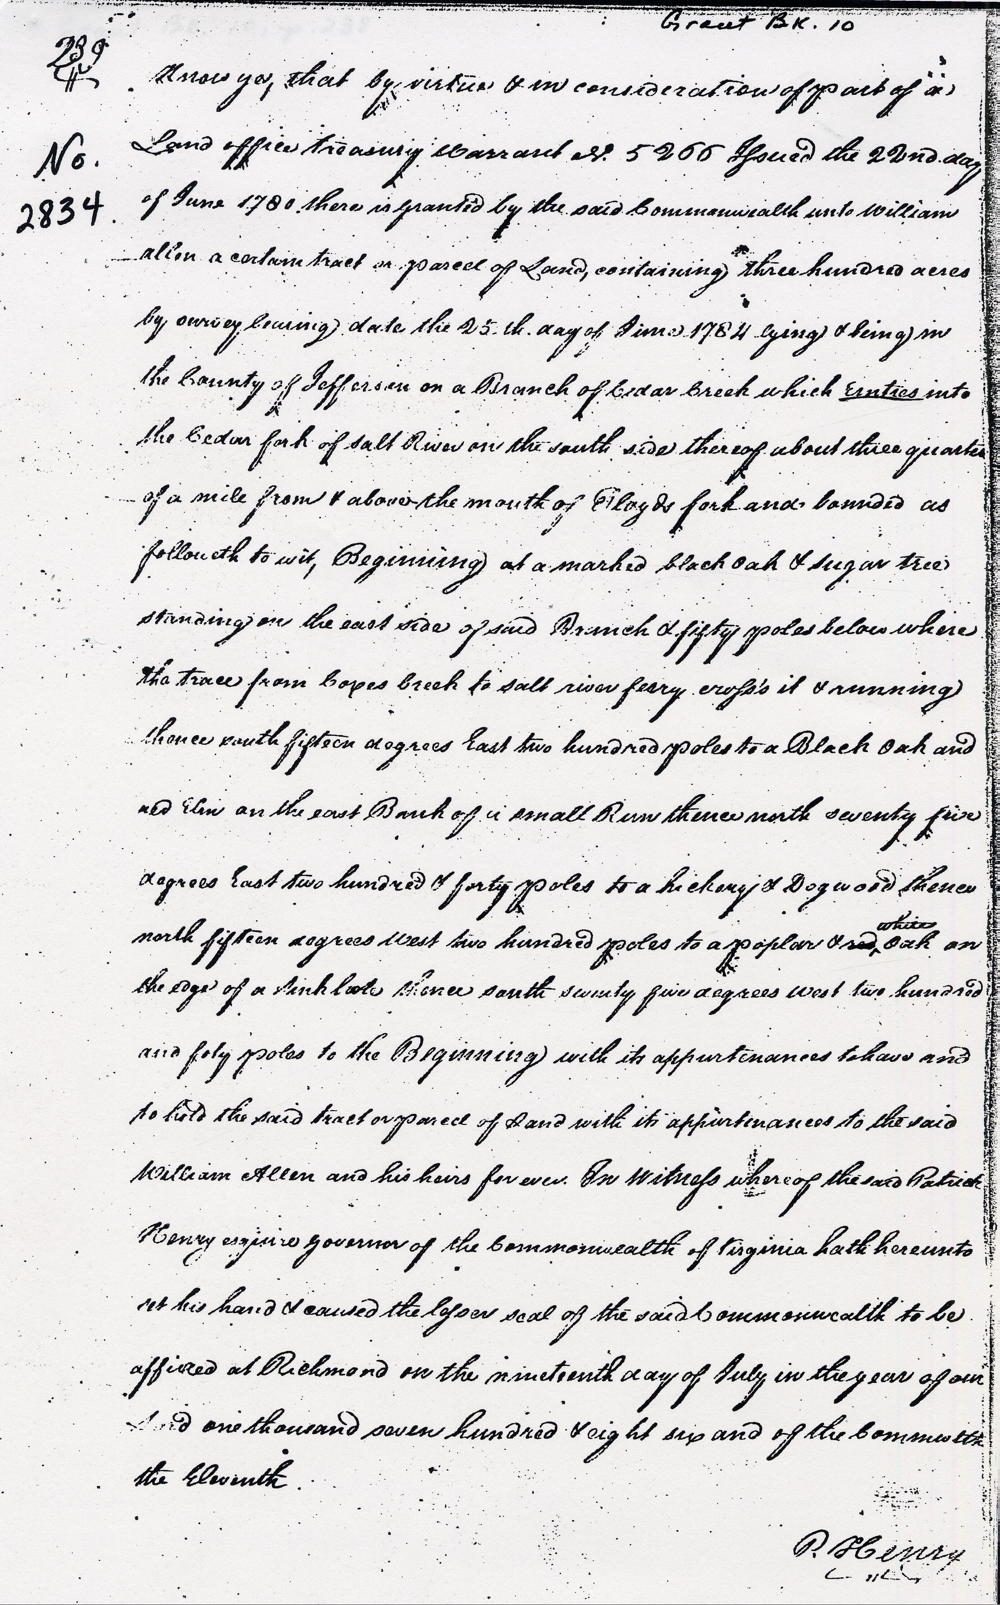 Grant Bk. 10
239
Know ye, that by virtue & in consideration of part of a
No.
Land office treasury Warrant No. 5266 Issued the 22nd. day
2834.
of June 1780 there is granted by the said Commonwealth unto William
allen a certain tract or parcel of Land, containing three hundred acres
by survey bearing date the 25.th. day of June 1784 lying & being in
the County of Jefferson on a Branch of Cedar Creek which Emties into
the Cedar fork of salt River on the south side thereof about three quarter
of a mile from & above the mouth of Floyds fork and bounded as
followeth to wit, Beginning at a marked black Oak & sugar tree
standing on the east side of said Branch & fifty poles below where
the trace from Coxes Creek to salt river ferry cross's it & running
thence south fifteen degrees East two hundred poles to a Black Oak and
red Elm on the east Bank of a small Run thence north seventy five
degrees East two hundred & forty poles to a hickery & Dogwood thence
north fifteen degrees West two hundred poles to a poplar & red white Oak on
the edge of a sink thence south seventy five degrees West two hundred
and foty poles to the Beginning with its appurtinances to have and
to hold the said tract or parcel of Land with its appurtenances to the said
William Allen and his heirs for ever. In Witness whereof the said Patrick
Henry esquire governor of the Commonwealth of Virginia hath hereunto
set his hand & caused the lesser seal of the said Commonwealth to be
affixed at Richmond on the nineteenth day of July in the year of our
Lord one thousand seven hundred & eight six and of the Commwlth
the Eleventh.
P. Henry